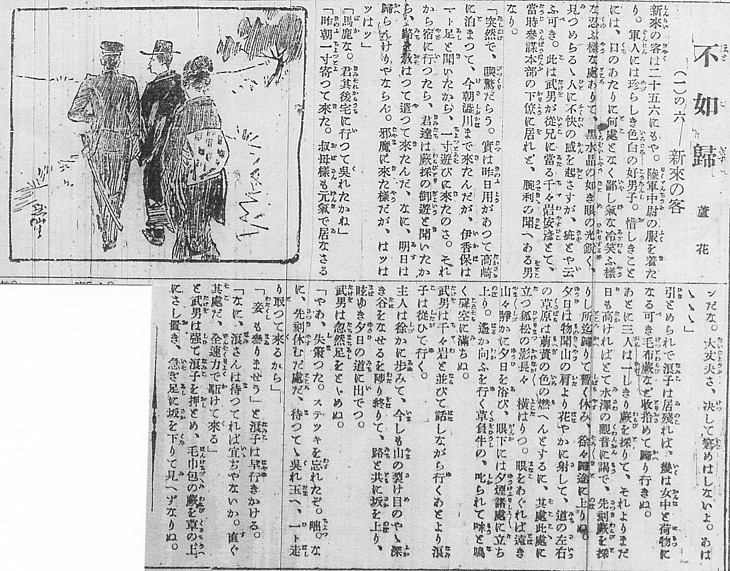 不如歸
蘆花
(一)の六 新來の客
新來の客は二十五六にもや。陸軍中尉の服を着た
り。軍人には珍らしき色白の好男子。惜しきこと
には、口のあたりに何處となく鄙し氣な冷笑ふ樣
な忍ぶ樣な處ありて、黑水晶の如き眼の光鋭く、
見つめらるゝ人に不快の感を起さすが、疵とや云
ふ可き。此は武男が從兄に當る千々岩安彦とて、
當時參謀本部の下僚に居れど、腕利の聞へある男
なり。
「突然で、喫驚だらう。實は昨日用があつて高崎
に泊まつて、今朝澁川まで來たんだが、伊香保は
一ト足と聞いたから、一寸遊びに來たのさ。それ
から宿に行つたら、君達は蕨採の御遊と聞いたか
ら、路を敎はつて遣つて來たんだ。なに、明日は
歸らんけりやならん。邪魔に來た樣だが、はッは
ッはッ」
「馬鹿な。君其後宅に行つて吳れたかね」
「昨朝一寸寄つて來た。叔母樣も元氣で居なさる
引とめられて浪子は居殘れば、幾は女中と荷物に
なる可き毛布蕨など收拾めて歸り行きぬ。
あとに三人は一しきり蕨を採りて、それよりまだ
日も高ければとて水澤の觀音に詣で、先刻蕨を採
りし所迄歸りて暫く休み、徐々歸途に上りぬ。
夕日は物聞山の肩より花やかに射して、道の左右
の草原は萠黃の色の燃へんとするに、其處此處に
立つ孤松の影長々橫はりつ。眼をあぐれば遠き
山々靜かに夕日を浴び、眼下には夕煙諸處に立ち
上り。遙か向ふを行く草負牛の、叱られて咊と鳴
く聲空に滿ちぬ。
武男は千々岩と並びて話しながら行くあとより浪
子は從ひて行く。
主人は徐かに步みて、今しも山の裂け目のやゝ深
き谷をなせるを陟り終りて、路と共に坂を上り、
眩ゆき夕日の道に出でつ。
武男は忽然足をとゞめぬ。
「やあ、失策つた。ステッキを忘れたぞ。咄。な
に、先刻休むだ處だ、待つて吳れ玉へ、一ト走
り取つて來るから」
「妾も參りませう」と浪子は早行きかける。
「なに、浪さんは待つてれば宜ぢやないか。直ぐ
其處だ。全速力で駈けて來る」
武男は强て浪子を押とめ、毛巾包の蕨を草の上
にさし置き、急ぎ足に坂を下りて見へずなりぬ。